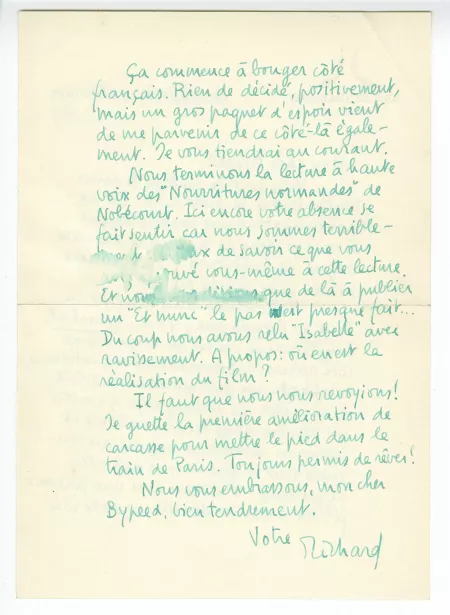 Ça commence à bouger côté
français. Rien de décidé, positivement,
mais un gros paquet d'espoir vient
de me parvenir de ce côté-là égale-
ment. Je vous tiendrai au courant.
Nous terminons la lecture à haute
voix des "Nourritures normandes" de
Nobécourt. Ici encore votre absence se
fait sentir car nous sommes terrible-
de savoir ce que vous
vous-même à cette lecture.
Et nous que de là à publier
un "Et nunc" le pas est presque fait...
Du coup nous avons relu "Isabelle" avec
ravissement. A propos : où en est la
réalisation du film ?
Il faut que nous nous revoyions !
Je guette la première amélioration de
carcasse pour mettre le pied dans le
train de Paris. Toujours permis de rêver !
Nous vous embrassons, mon cher
Bypeed, bien tendrement.
Votre
Richard